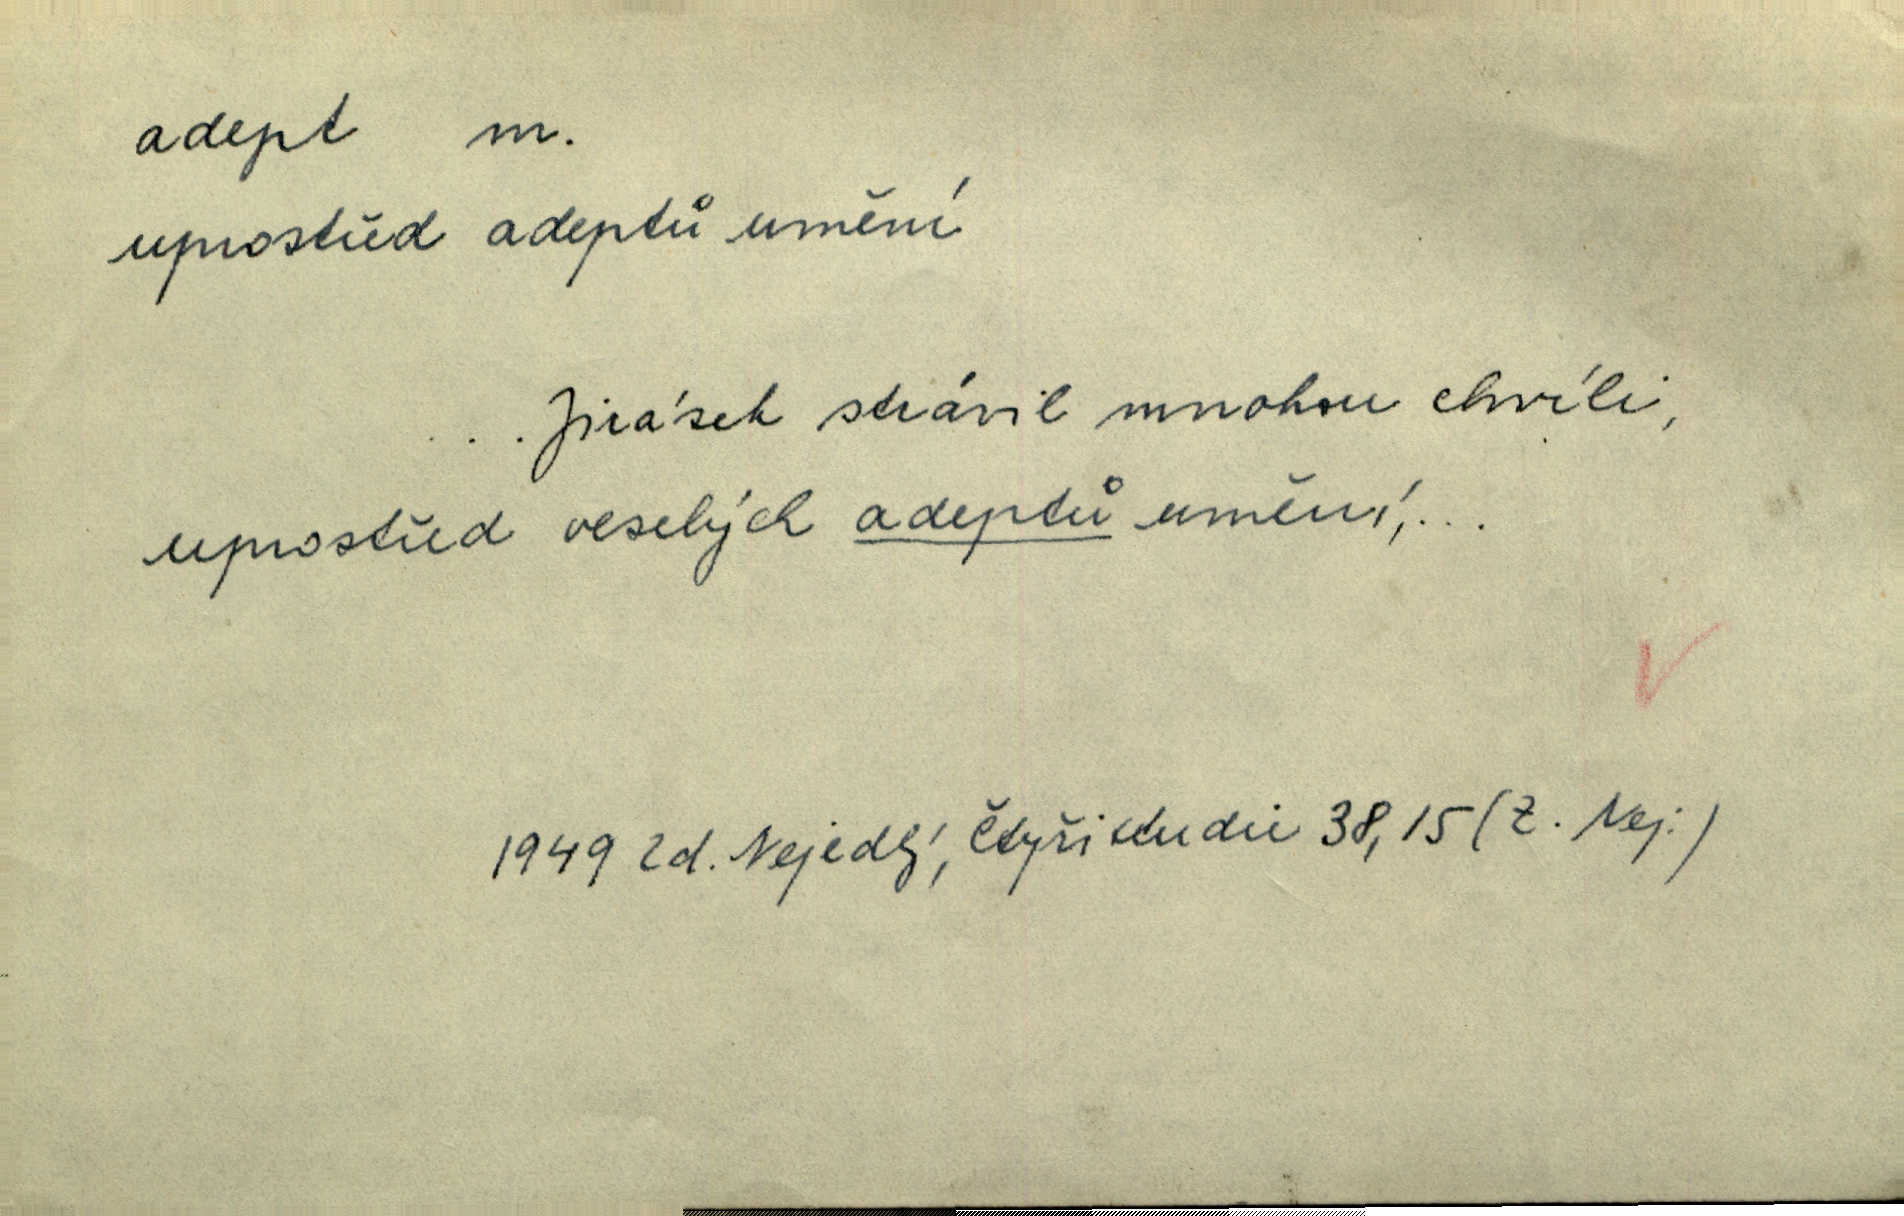 adept m.
uprostřed adeptů umění
...Jirásek strávil mnohou chvíli,
uprostřed veselých adeptů umění,...
1949 Zd. Nejedlý, Čtyři studie 38, 15 (Z. Nej.)